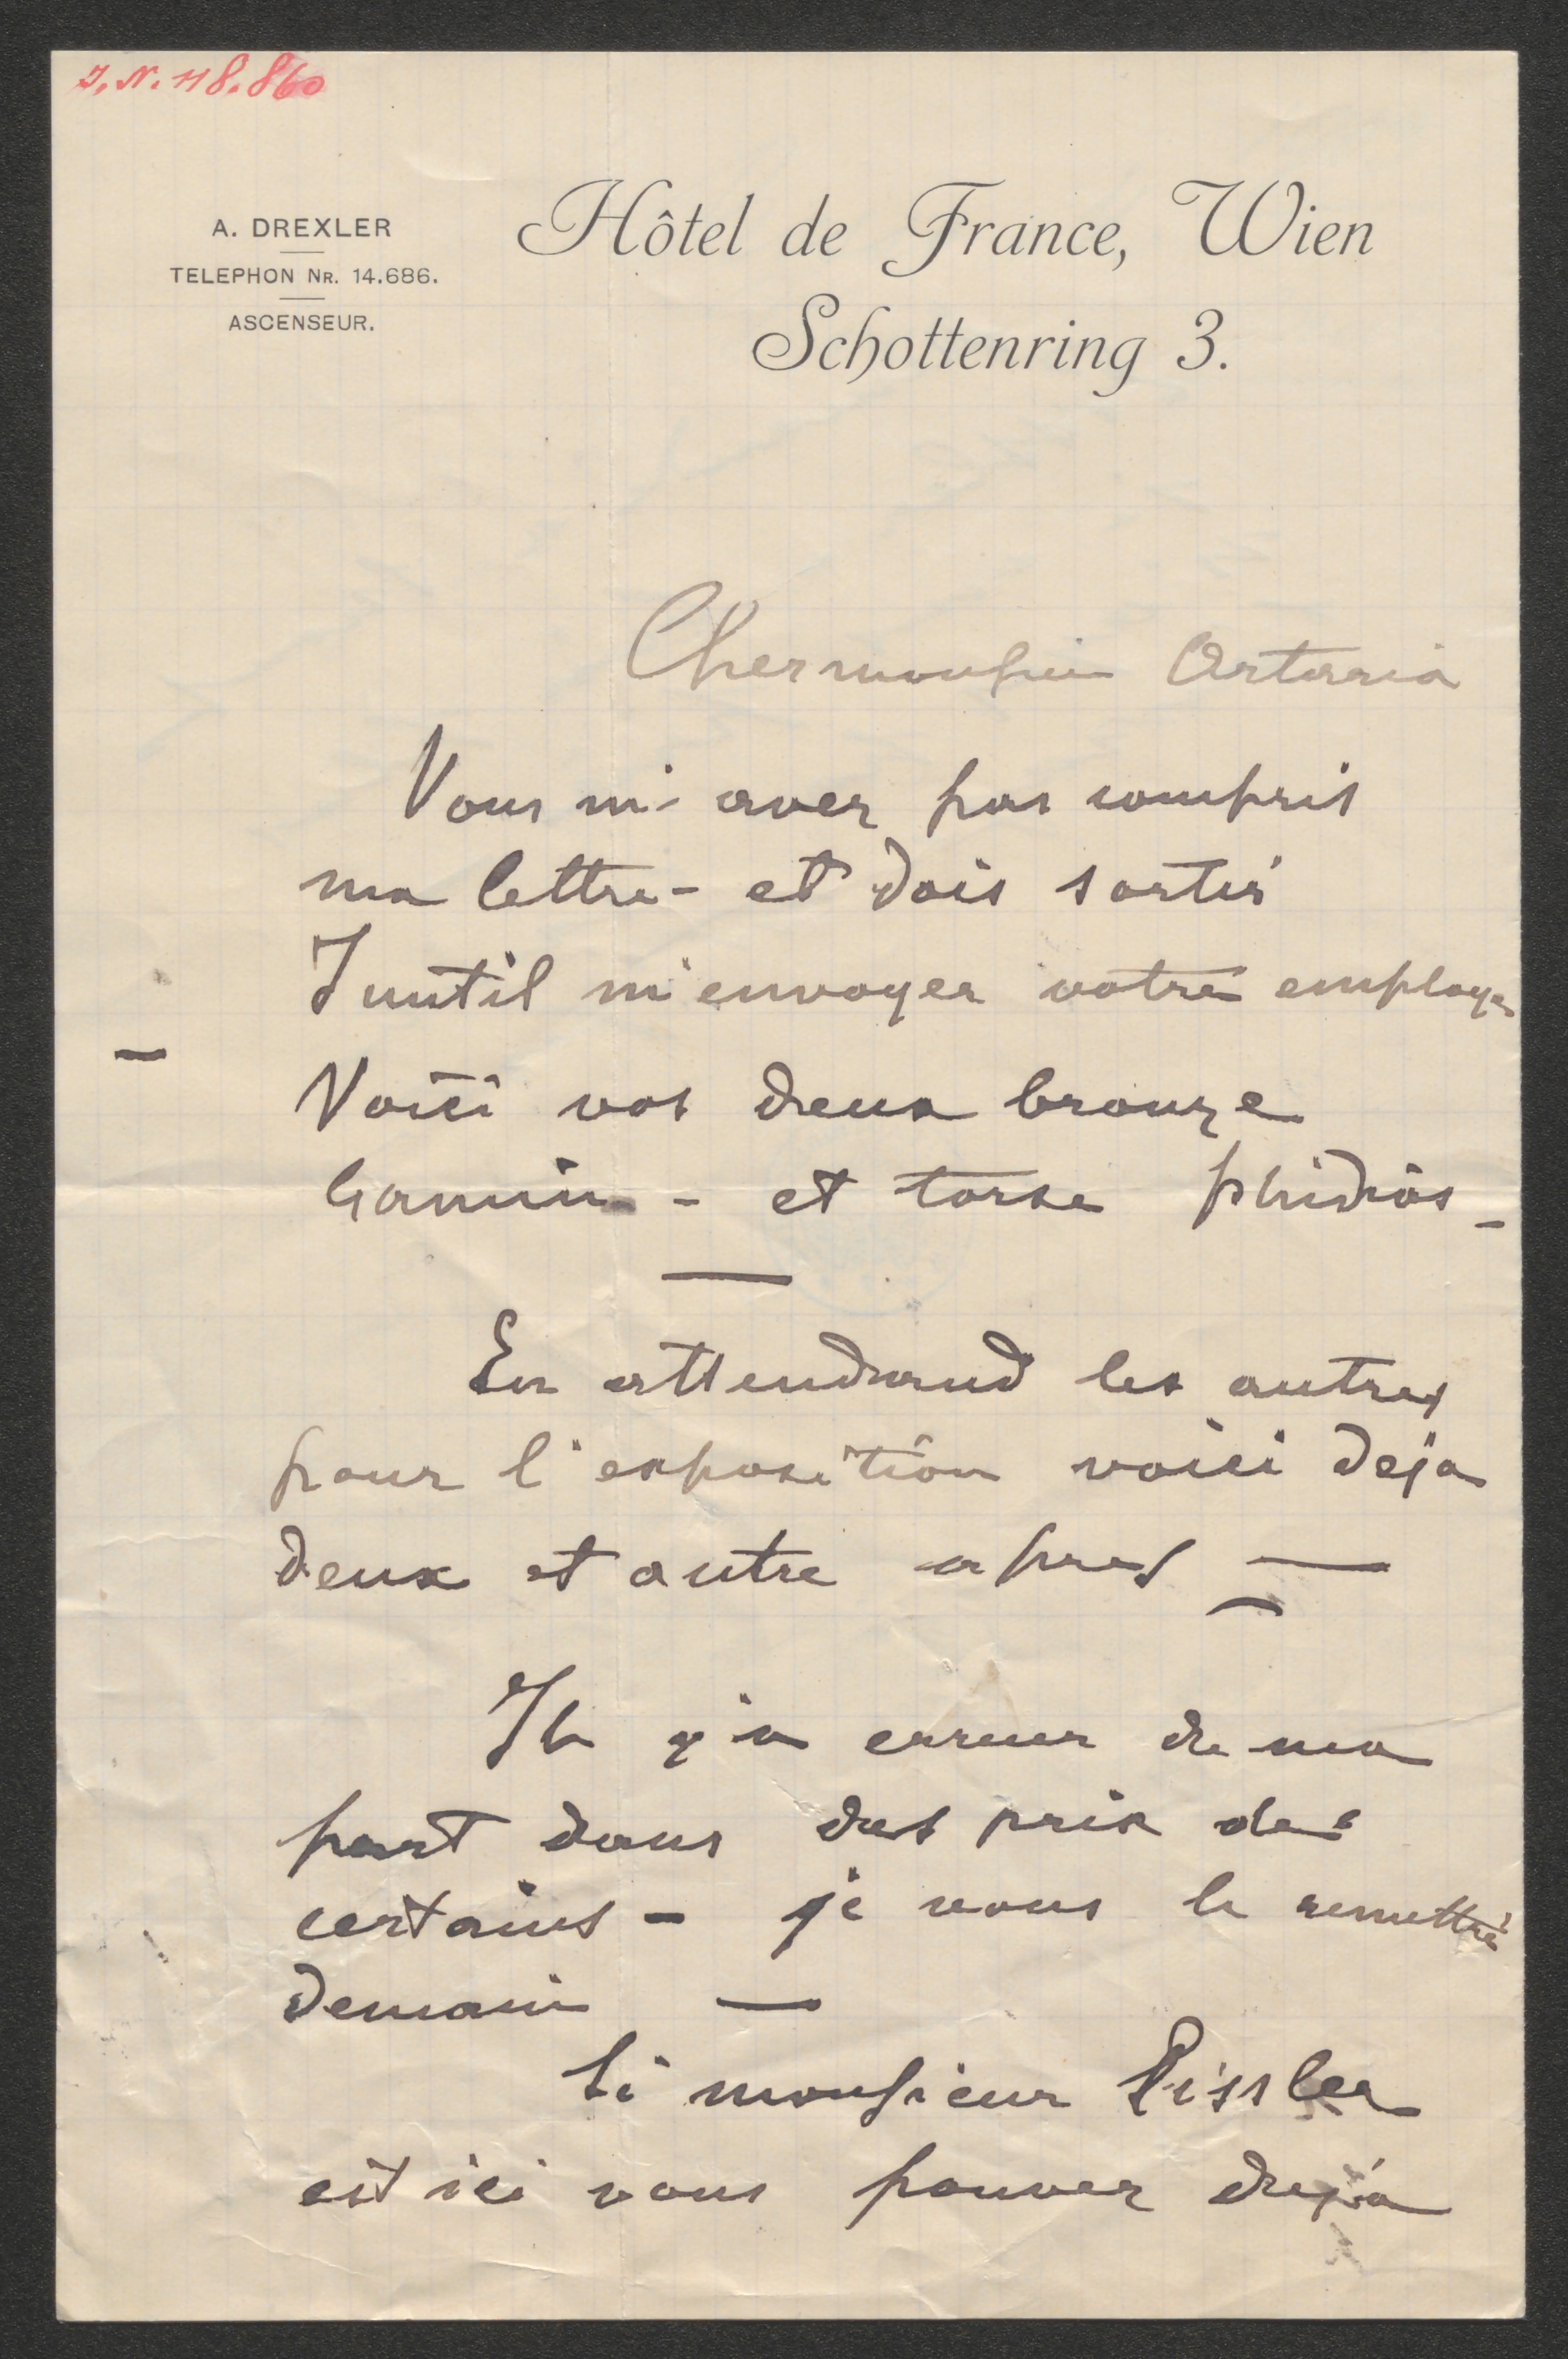 J. N. 118.860
A. DREXLER
TELEPHON NR. 14.686.
ASCENSEUR.
Hôtel de France, Wien
Schottenring 3.
Cher monsieur Artaria
Vous m'aver pas compris
ma lettre - et dois sortir
Inutil m'envoyer votre employer
Voici vos deux bronze
Gamin - et torse phidias -
En attendand les autres
pour l'exposition voici deja
deux et autre apres —
Il y'a erreur de ma
part dans des prix des
certains - je vous le remettre
demain —
Si monsieur Pissler
est ici vous pouver deja